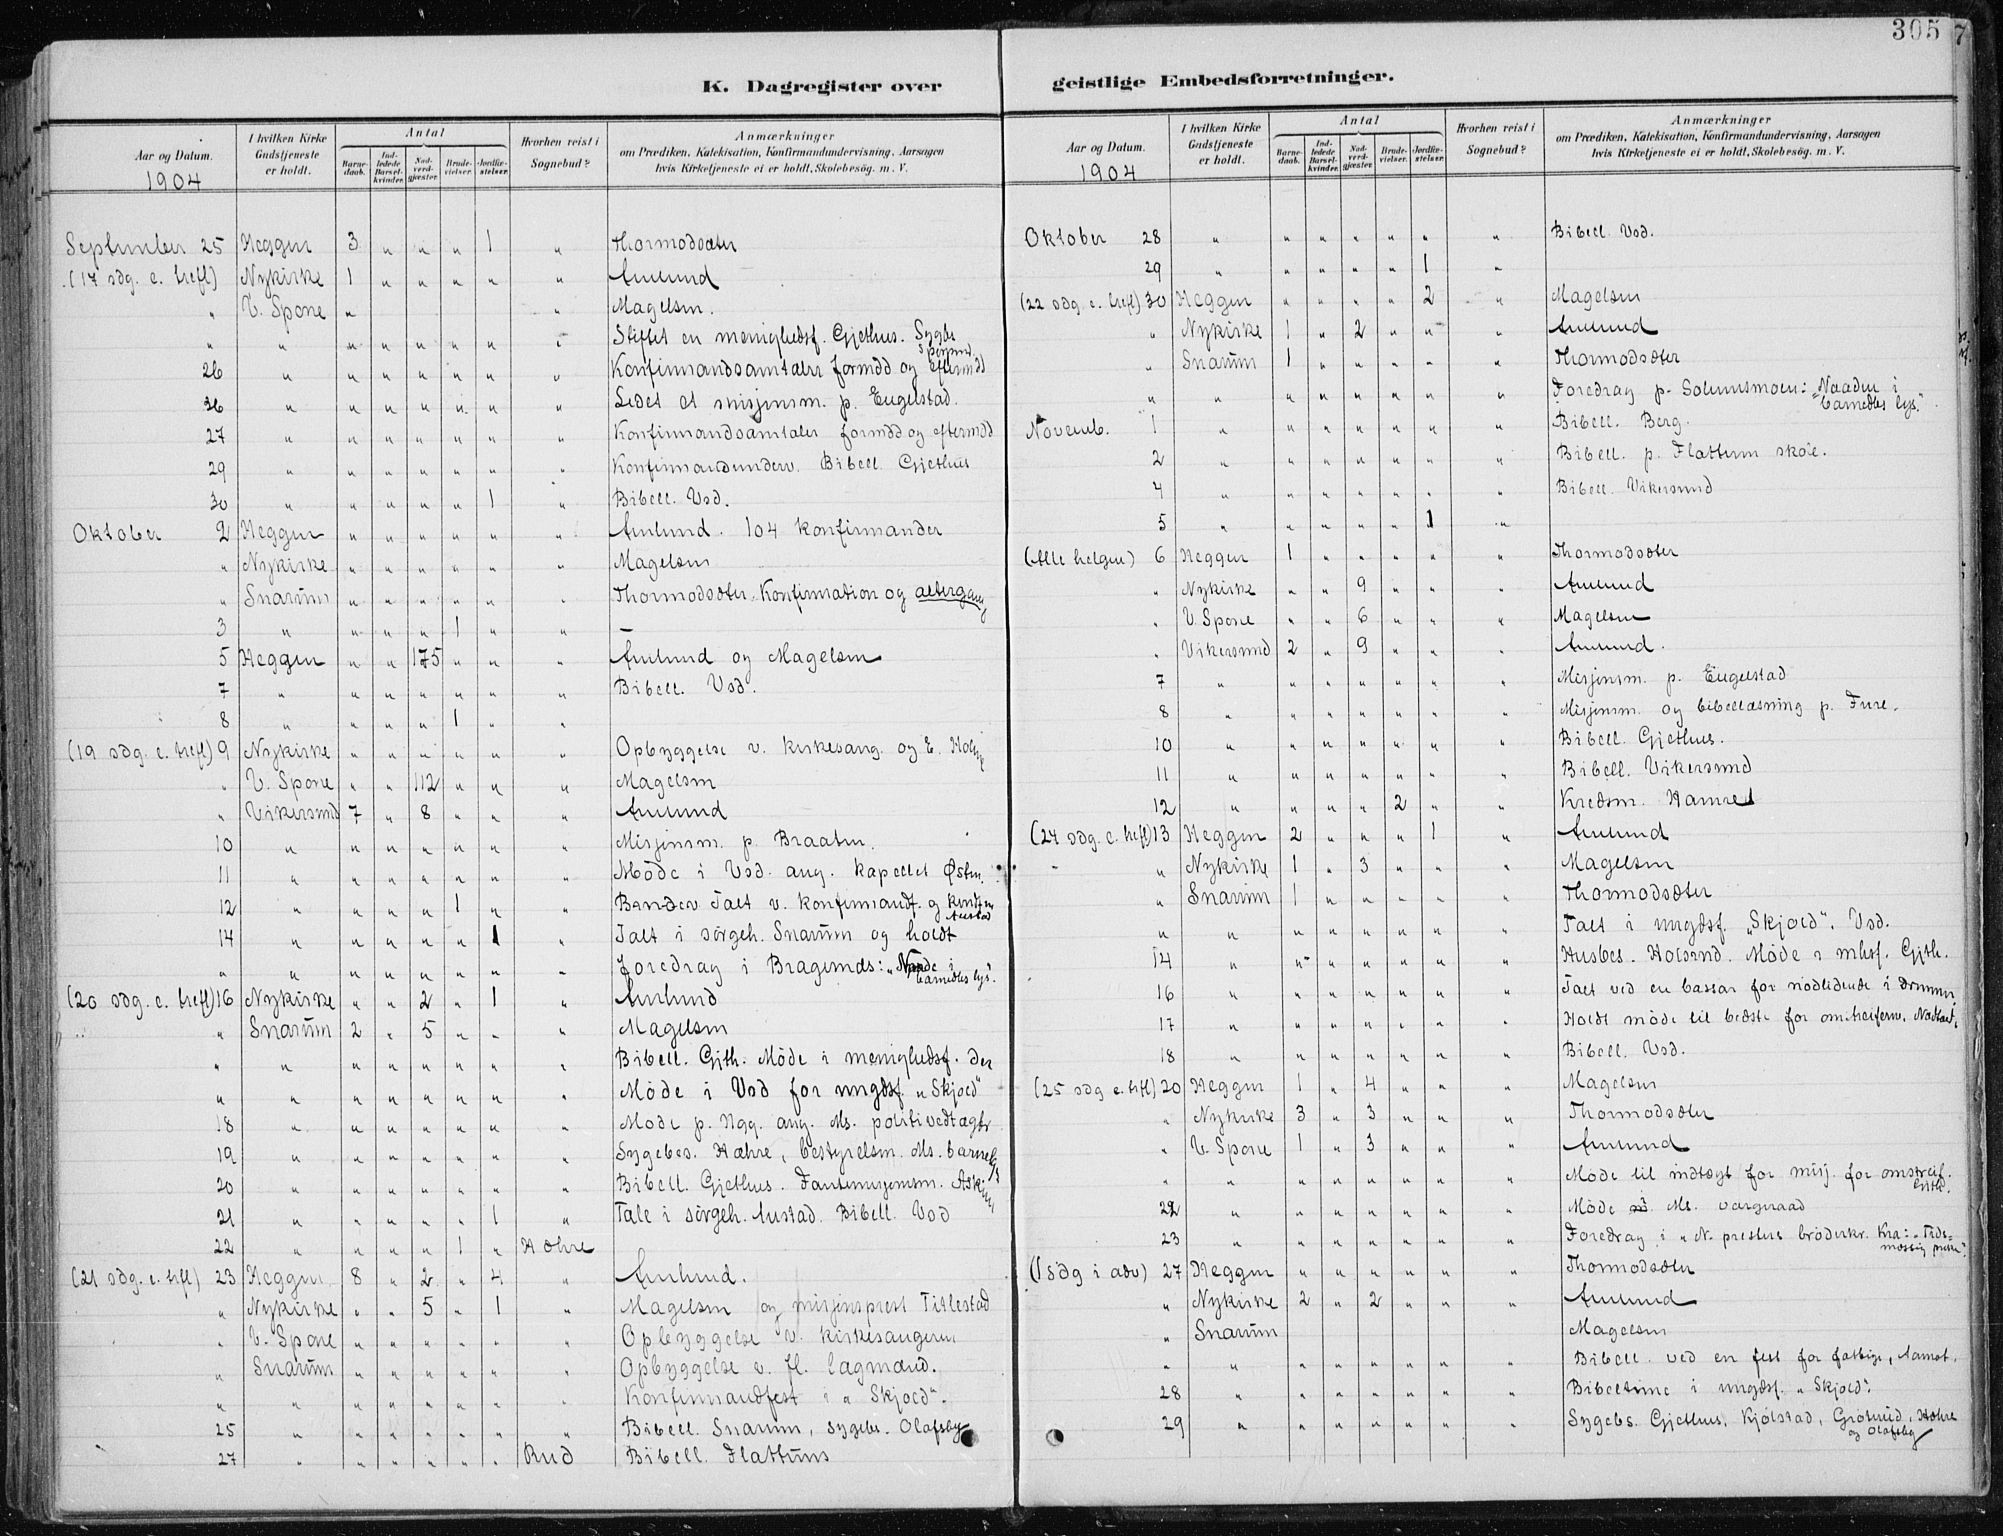 305 7
K. Dagregister over geistlige Embedsforretninger.
Aar og Datum. 1904
I hvilken Kirke Gudstjeneste er holdt.
Antal
Barnedaab. Indledede Barselkvinder. Nadverdgjæster. Brudevielser. Jordfæstelser.
Hvorhen reist i Sognebud?
Anmærkninger om Prædiken, Katekisation, Konfirmandundervisning, Aarsagen hvis Kirketjeneste ei er holdt, Skolebesög. m. V.
September 25 Heggen 3 " " " 1 " Thormodsæter
(17 sdg. e. trefl) Nykirke 1 " " " " " Amlund
" V. Spone " " Magelsen.
" " " " " " " " Stiftet en menighedsf. Gjethus. Sygbs
26 " " " " " " " Konfirmandsamtaler formdd og eftermdd
26 " " " " " " " Ledet et misjinsm. p. Engelstad.
27 " " " " " " " Konfirmandsamtaler formdd og eftermdd
29 " " " " " " " Konfirmandunderv. Bibell. Gjethus
30 " " " " " 1 " Bibell. Vod.
Oktober 2 Heggen " " " " " " Amlund. 104 konfirmander
" Nykirke " " " " " " Magelsen
" Snarum " " " " " " Thormodsæter. Konfirmation og altergang
3 " " " " 1 " " –
5 Heggen " " 175 " " " Amlund og Magelsen
7 " " " " " " " Bibell. Vod.
8 " " " " 1 " "
(19 sdg. e. trefl) 9 Nykirke " " " " " " Opbyggelse v. kirkesang. og E. Holm
" V. Spone " " 112 " " " Magelsen
" Vikersund 7 " 8 " " " Amlund
10 " " " " " " " Misjinsm. p. Braaten.
11 " " " " " " " Møde i Vod. ang. kapellet Østm.
12 " " " " 1 " " Talt v. konfirmandf. Austad
14 " " " " " 1 " Talt i sörgeh. Snarum og holdt
" " " " " " " " foredrag i Bragernds: "Naade i barnedbs lys".
(20 sdg. e. trefl) 16 Nykirke " " 2 " 1 " Amlund
" Snarum 2 " 5 " " " Magelsen
" " " " " " " " Bibell. Gjth. Møde i menighedsf. der
" " " " " " " " Møde i Vod for ungdsf. "Skjold"
18 " " " " " " " Møde p. Ngg. ang. Ms. politivedtægtr
19 " " " " " " " Sygebes. Hæhre, bestyrelsm. Ms.
20 " " " " " " " Bibell. Gjethus. Askim
21 " " " " " 1 " Tale i sörgeh. Austad. Bibell. Vod
22 " " " " 1 " Hæhre
(21 sdg. e. trfl) 23 Heggen 8 " 2 " 4 " Amlund.
" Nykirke " " 5 " 1 " Magelsen og misjinsprest Titlestad
" V. Spone " " " " " " Opbyggelse v. kirkesangeren
" Snarum " " " " " " Opbyggelse v. Hl. Lagmand.
" " " " " " " " Konfirmandfest i "Skjold".
25 " " " " " " " Bibell. Snarum, sygebs. Olafsby
27 " " " " " " Rud Bibell. Flattum
Aar og Datum. 1904
I hvilken Kirke Gudstjeneste er holdt.
Antal
Barnedaab. Indledede Barselkvinder. Nadverdgjæster. Brudevielser. Jordfæstelser.
Hvorhen reist i Sognebud?
Anmærkninger om Prædiken, Katekisation, Konfirmandundervisning, Aarsagen hvis Kirketjeneste ei er holdt, Skolebesög. m. V.
Oktober 28 " " " " " " " Bibell. Vod.
29 " " " " " 1 "
(22 sdg. e. trefl) 30 Heggen " " " " 2 " Magelsen
" Nykirke 1 " 2 " " " Amlund
" Snarum 1 " " " " " Thormodsæter
" " " " " " " " Foredrag p. Solumsmoen: "Naaden i barnedbs lys".
Novemb. 1 " " " " " " " Bibell. Berg.
2 " " " " " " " Bibell. p. Flattum skole.
4 " " " " " " " Bibell. Vikersund
5 " " " " " 1 "
(Alle helgen) 6 Heggen 1 " " " " " Thormodsæter
" Nykirke " " 9 " " " Amlund
" V. Spone " " 6 " " " Magelsen
" Vikersund 2 " 9 " " " Amlund.
7 " " " " " " " Misjinsm. p. Engelstad
8 " " " " " " " Misjinsm. og bibellæsning p. Fure.
10 " " " " " " " Bibell. Gjethus.
11 " " " " " " " Bibell. Vikersund
12 " " " " 2 " " Kredsm. Hamre
(24 sdg. e. trefl) 13 Heggen 2 " " " 1 " Amlund
" Nykirke 1 " 3 " " " Magelsen
" Snarum 1 " " " " " Thormodsæter
" " " " " " " " Talt i ungdsf. "Skjold". Vod.
14 " " " " " " " Husbes. Holsrud. Møde i mhsf. Gjth.
16 " " " " " " " Talt ved en bassar for nødlidende i Drammen
17 " " " " " " " Holdt møde til bedste for omstreiferv.
18 " " " " " " " Bibell. Vod.
(25 sdg e. trfl) 20 Heggen 1 " 4 " " " Magelsen
" Nykirke 3 " 3 " " " Thormodsæter
" V. Spone 1 " 3 " " " Amlund
" " " " " " " " Møde til indtægt for misj. for omstreif.
22 " " " " " " " Møde i Ms. værgeraad
23 " " " " " " " Foredrag i "N. presters bröderkr. Kra: "Tidsmæssig præken".
(1 sdg i adv) 27 Heggen " " " " " " Thormodsæter
" Nykirke 2 " 2 " " " Amlund
" Snarum Magelsen
" " " " " " " " Bibell. ved en fest for fattige, Aamot.
28 " " " " " " " Bibeltime i ungdsf. "Skjold".
29 " " " " " " " Sygebs. Gjethus, Kjölstad, Grötrud, Hæhre og Olafsby